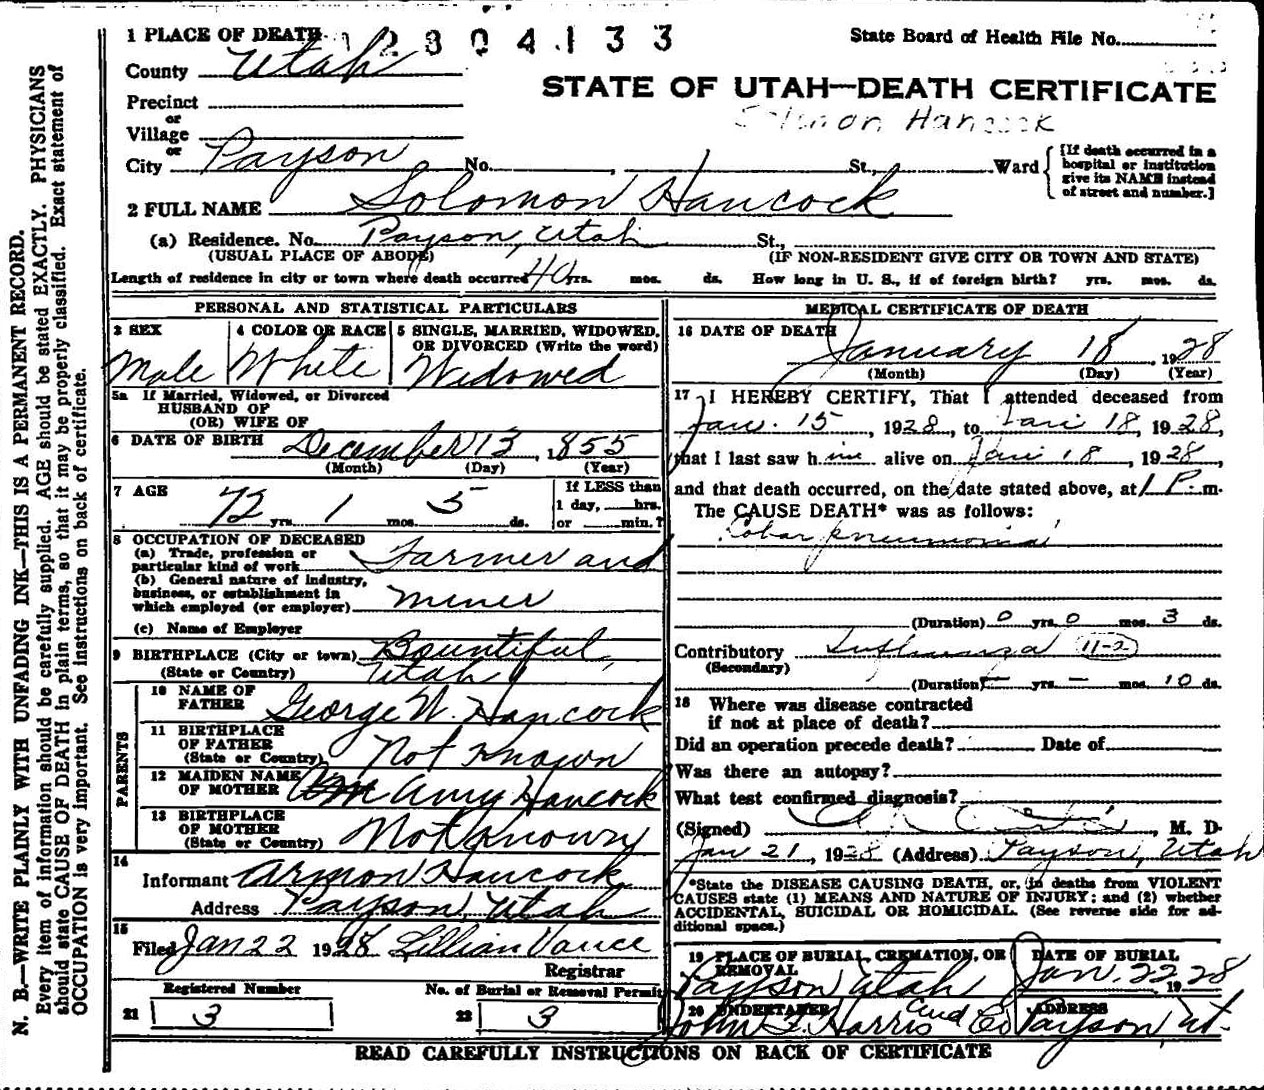 N. B.—WRITE PLAINLY WITH UNFADING INK—THIS IS A PERMANENT RECORD.
Every item of information should be carefully supplied. AGE should be stated EXACTLY. PHYSICIANS
should state CAUSE OF DEATH in plain terms, so that it may be properly classified. Exact statement of
OCCUPATION is very important. See instructions on back of certificate.
2804133
State Board of Health File No.
1 PLACE OF DEATH
County Utah
STATE OF UTAH—DEATH CERTIFICATE
Solomon Hancock
Precinct
or
Village
or
City Payson No. , St., Ward
{[If death occurred in a
hospital or institution
give its NAME instead
of street and number.]
2 FULL NAME Solomon Hancock
(a) Residence. No. Payson, Utah St.,
(USUAL PLACE OF ABODE) (IF NON-RESIDENT GIVE CITY OR TOWN AND STATE)
Length of residence in city or town where death occurred 40 yrs. mos. ds. How long in U. S., if of foreign birth? yrs. mos. ds.
PERSONAL AND STATISTICAL PARTICULARS
3 SEX
Male
4 COLOR OR RACE
White
5 SINGLE, MARRIED, WIDOWED,
OR DIVORCED (Write the word)
Widowed
5a If Married, Widowed, or Divorced
HUSBAND OF
(OR) WIFE OF
6 DATE OF BIRTH December 13, 1855
(Month) (Day) (Year)
7 AGE
72 yrs. 1 mos. 5 ds.
If LESS than
1 day, hrs.
or min.?
8 OCCUPATION OF DECEASED
(a) Trade, profession or
particular kind of work Farmer and
(b) General nature of industry,
business, or establishment in
which employed (or employer) Miner
(c) Name of Employer
9 BIRTHPLACE (City or town) Bountiful,
(State or Country) Utah
PARENTS
10 NAME OF
FATHER George W. Hancock
11 BIRTHPLACE
OF FATHER
(State or Country) Not Known
12 MAIDEN NAME
OF MOTHER Amy Hancock
13 BIRTHPLACE
OF MOTHER
(State or Country) Not Known
14
Informant Armon Hancock
Address Payson, Utah
15
Filed Jan 22 1928 Lillian Vance
Registrar
Registered Number
21 3
No. of Burial or Removal Permit
22 3
MEDICAL CERTIFICATE OF DEATH
16 DATE OF DEATH
January 18, 1928
(Month) (Day) (Year)
17 I HEREBY CERTIFY, That I attended deceased from
Jan. 15, 1928, to Jan 18, 1928,
that I last saw him alive on Jan 18, 1928,
and that death occurred, on the date stated above, at 1 P.m.
The CAUSE DEATH* was as follows:
Lobar pneumonia
(Duration) 0 yrs. 0 mos. 3 ds.
Contributory Influenza 11-2
(Secondary)
(Duration) — yrs. — mos. 10 ds.
18 Where was disease contracted
if not at place of death?
Did an operation precede death? Date of
Was there an autopsy?
What test confirmed diagnosis?
(Signed) , M. D.
Jan 21, 1928 (Address) Payson, Utah
*State the DISEASE CAUSING DEATH, or, in deaths from VIOLENT
CAUSES state (1) MEANS AND NATURE OF INJURY; and (2) whether
ACCIDENTAL, SUICIDAL OR HOMICIDAL. (See reverse side for ad-
ditional space.)
19 PLACE OF BURIAL, CREMATION, OR
REMOVAL
Payson Utah
DATE OF BURIAL
Jan. 22 1928
20 UNDERTAKER
John F. Harris and Co
ADDRESS
Payson, Ut.
READ CAREFULLY INSTRUCTIONS ON BACK OF CERTIFICATE